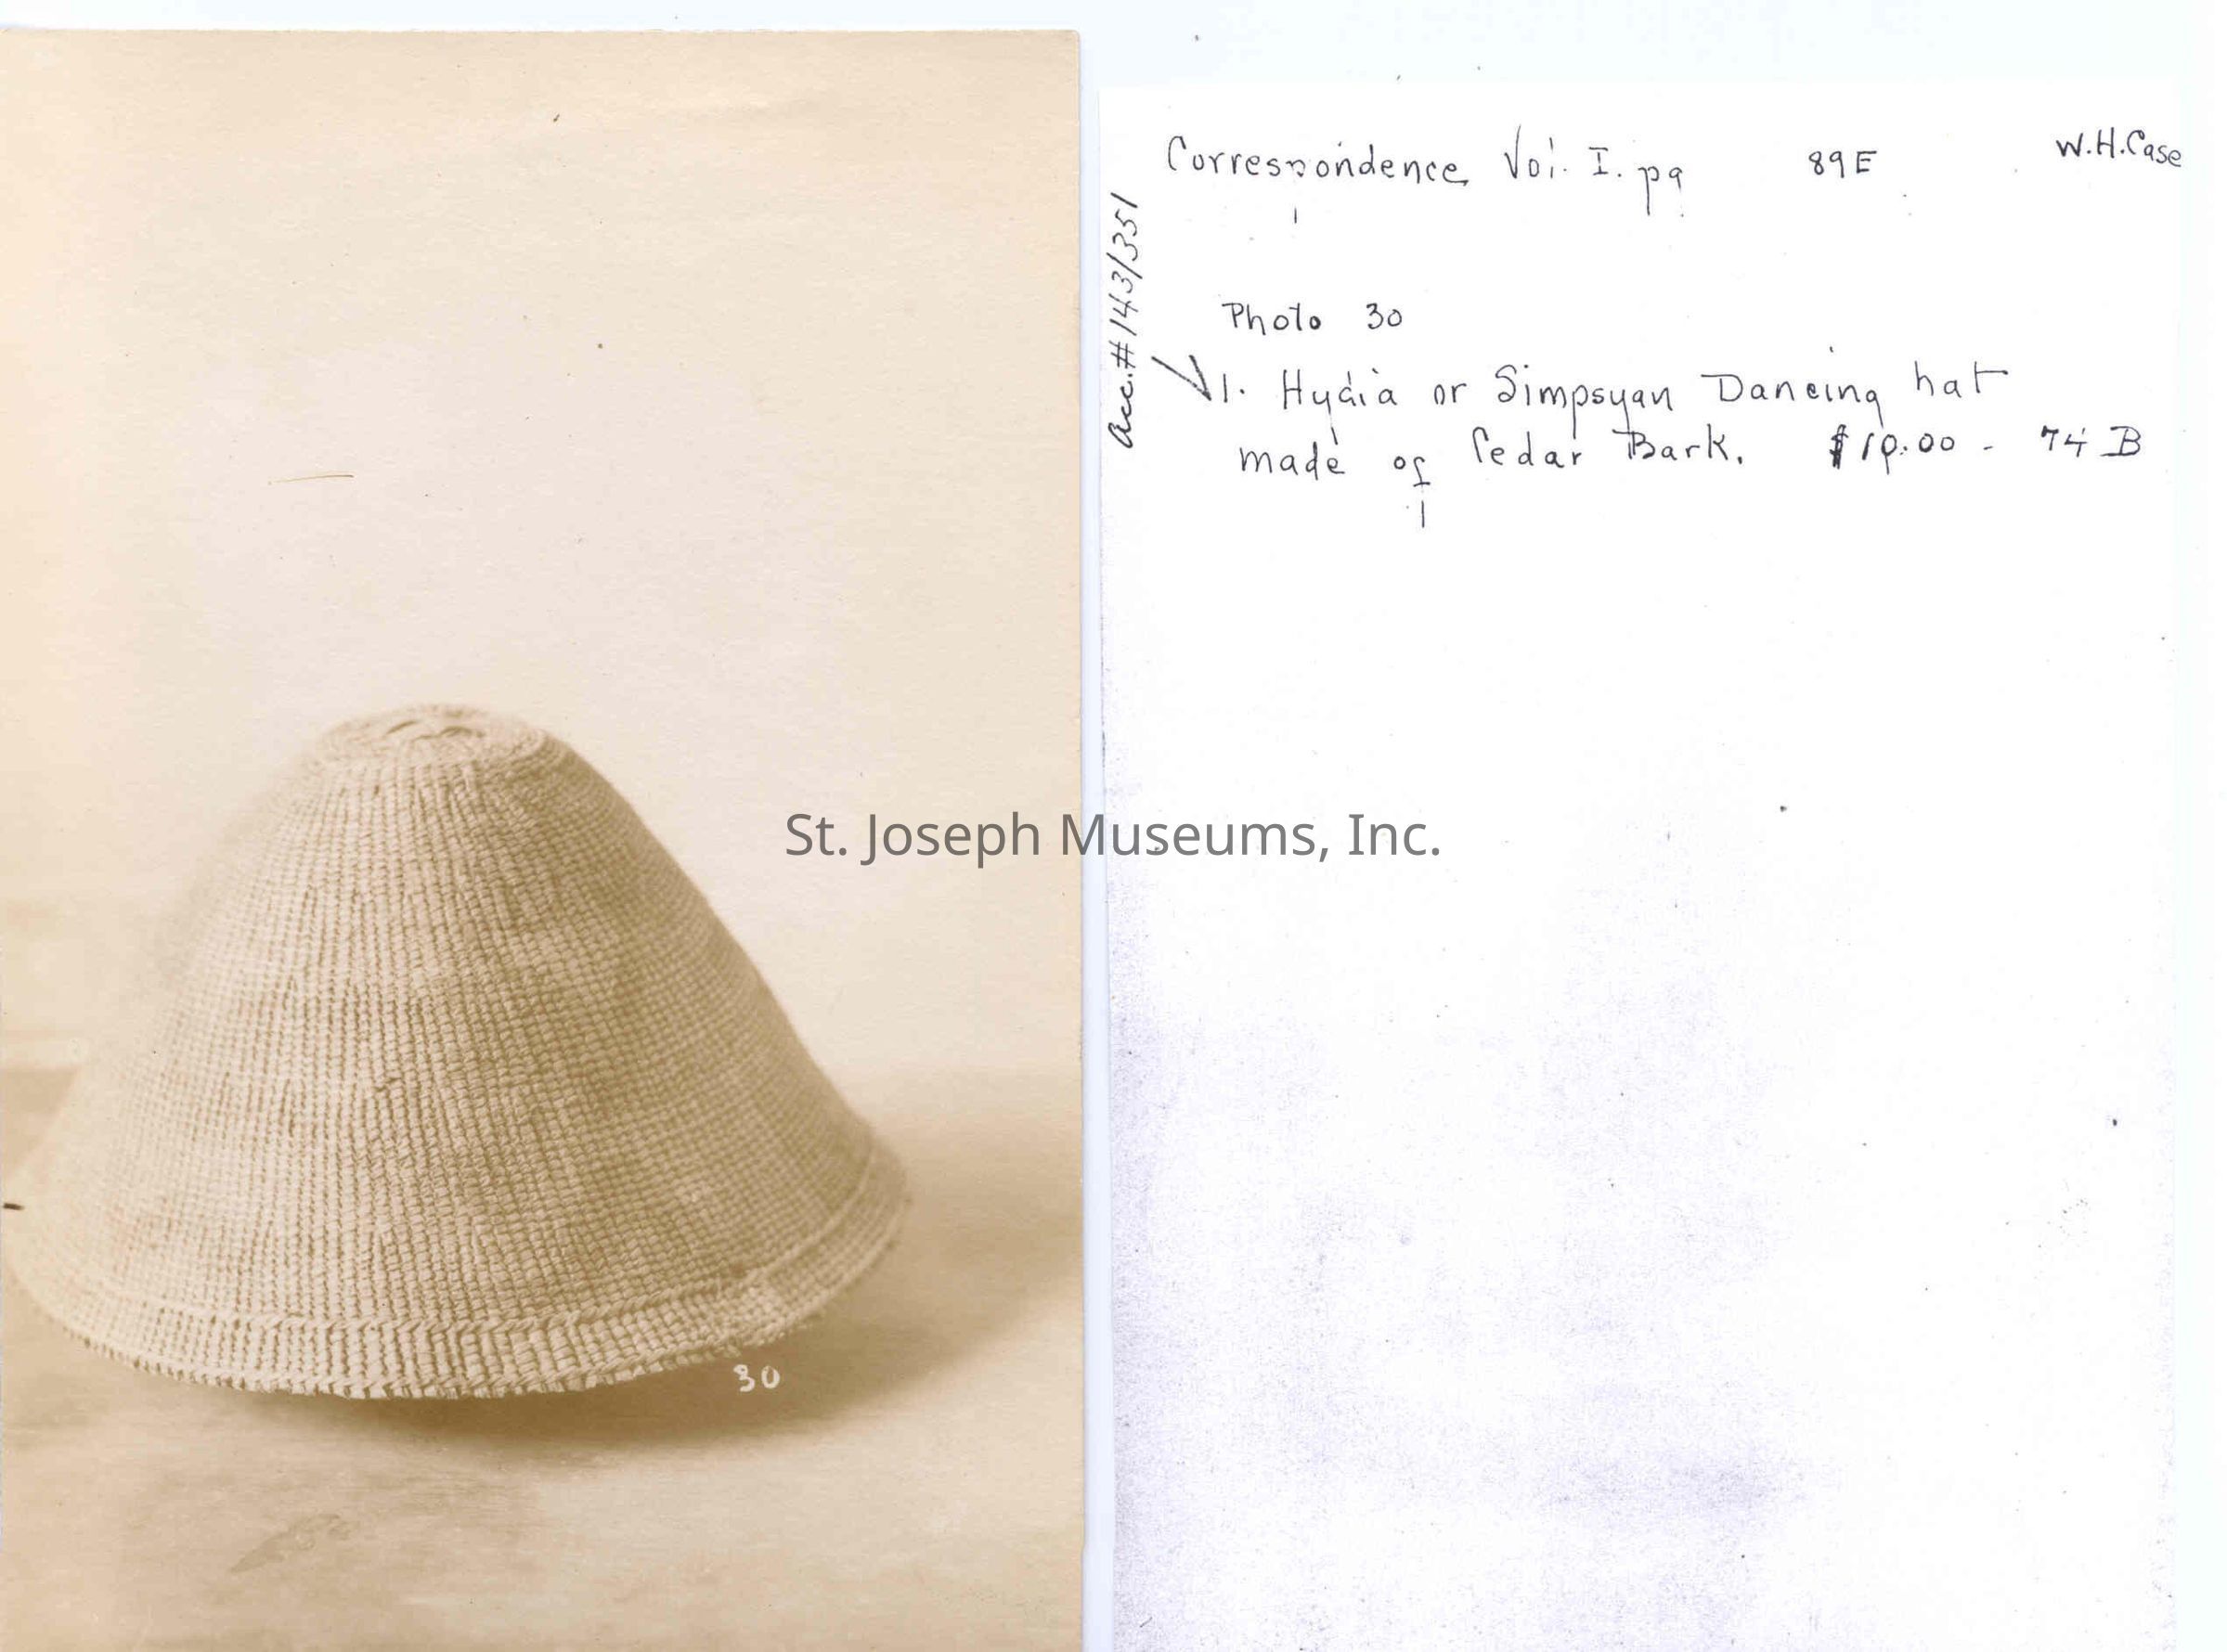 Correspondence Vol. I. pg 89E W.H.Case
Acc.# 143/351
Photo 30
1. Hydia or Simpsyan Dancing hat
made of Cedar Bark. $10.00 - 74 B
St. Joseph Museums, Inc.
30